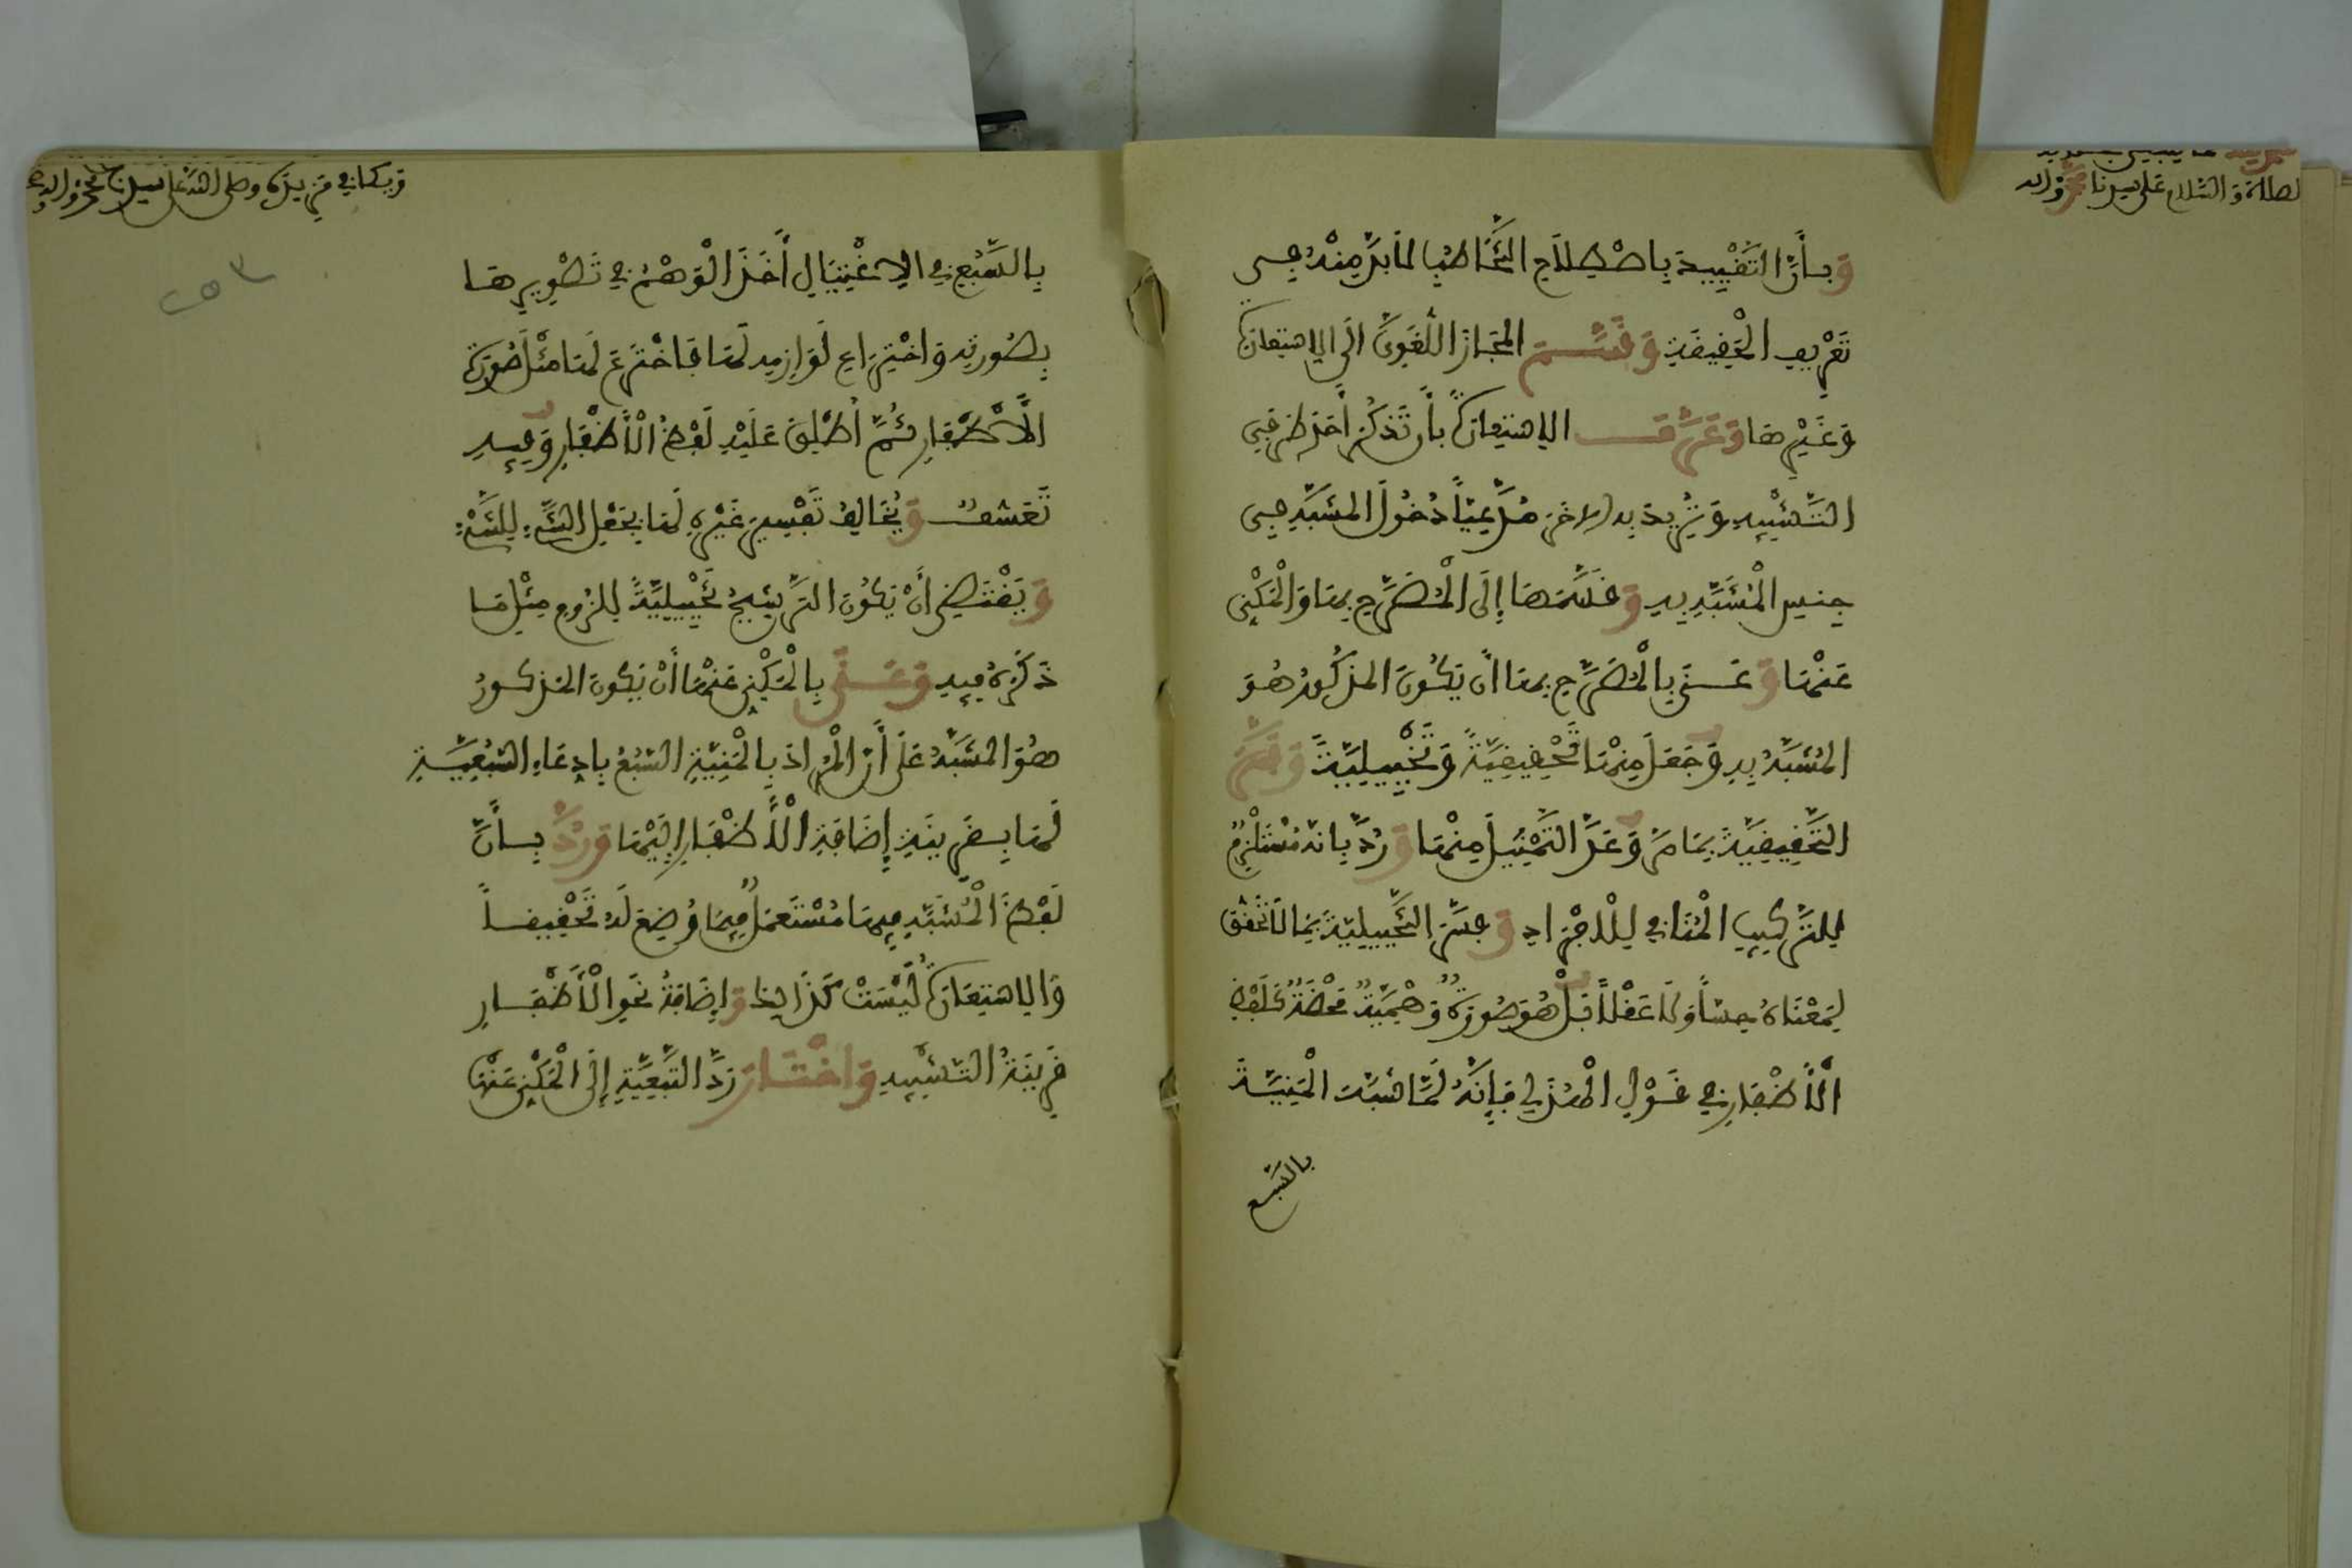 لصلاة والسلام على سيدنا محمد وءاله
وَبِأَنَّ التَّقْيِيدَ بِاصْطِلَاحِ التَّخَاطُبِ لَا بُدَّ مِنْهُ فِي
تَعْرِيفِ الْحَقِيقَةِ وَقَسَّمَ الْمَجَازَ اللُّغَوِيَّ إِلَى الِاسْتِعَارَةِ
وَغَيْرِهَا وَعَرَّفَ الِاسْتِعَارَةَ بِأَنْ تَذْكُرَ أَحَدَ طَرَفَيِ
التَّشْبِيهِ وَتُرِيدَ بِهِ الْآخَرَ مُدَّعِيًا دُخُولَ الْمُشَبَّهِ فِي
جِنْسِ الْمُشَبَّهِ بِهِ وَقَسَّمَهَا إِلَى الْمُصَرَّحِ بِهَا وَالْمَكْنِيِّ
عَنْهَا وَعَنَى بِالْمُصَرَّحِ بِهَا أَنْ يَكُونَ الْمَذْكُورُ هُوَ
الْمُشَبَّهُ بِهِ وَجَعَلَ مِنْهَا تَحْقِيقِيَّةً وَتَخْيِيلِيَّةً وَفَسَّرَ
التَّحْقِيقِيَّةَ بِمَا مَرَّ وَعَدَّ التَّمْثِيلَ مِنْهَا وَرُدَّ بِأَنَّهُ مُسْتَلْزِمٌ
لِلتَّرْكِيبِ الْمُنَافِي لِلْإِفْرَادِ وَفَسَّرَ التَّخْيِيلِيَّةَ بِمَا لَا تَحَقُّقَ
لِمَعْنَاهُ حِسًّا وَلَا عَقْلًا بَلْ هُوَ صُورَةٌ وَهْمِيَّةٌ مَحْضَةٌ كَلَفْظِ
الْأَظْفَارِ فِي قَوْلِ الْهُذَلِي فَإِنَّهُ لَمَّا شَبَّهَ الْمَنِيَّةَ
بالسبع
وبكاني في مزيدة وصلى الله على سيدنا محمد وءاله
بِالسَّبُعِ فِي الِاغْتِيَالِ أَخَذَ الْوَهْمُ فِي تَصْوِيرِهَا
بِصُورَتِهِ وَاخْتِرَاعِ لَوَازِمِهِ لَهَا فَاخْتَرَعَ لَهَا مِثْلَ صُورَةِ
الْأَظْفَارِ ثُمَّ أَطْلَقَ عَلَيْهِ لَفْظَ الْأَظْفَارِ وَفِيهِ
تَعَسُّفٌ وَيُخَالِفُ تَفْسِيرَ غَيْرِهِ لَهَا بِجَعْلِ الشَّيْءِ لِلشَّيْءِ
وَيَقْتَضِي أَنْ يَكُونَ التَّرْشِيحُ تَخْيِيلِيَّةً لِلُزُومِ مِثْلِ مَا
ذَكَرَهُ فِيهِ وَعَنَى بِالْمَكْنِيِّ عَنْهَا أَنْ يَكُونَ الْمَذْكُورُ
هُوَ الْمُشَبَّهُ عَلَى أَنَّ الْمُرَادَ بِالْمَنِيَّةِ السَّبُعُ بِادِّعَاءِ السَّبُعِيَّةِ
لَهَا بِقَرِينَةِ إِضَافَةِ الْأَظْفَارِ إِلَيْهَا وَرُدَّ بِأَنَّ
لَفْظَ الْمُشَبَّهِ فِيهَا مُسْتَعْمَلٌ فِيمَا وُضِعَ لَهُ تَحْقِيقًا
وَالِاسْتِعَارَةُ لَيْسَتْ كَذَلِكَ وَإِضَافَةُ نَحْوِ الْأَظْفَارِ
قَرِينَةُ التَّشْبِيهِ وَاخْتَارَ رَدَّ التَّبَعِيَّةِ إِلَى الْمَكْنِيِّ عَنْهَا